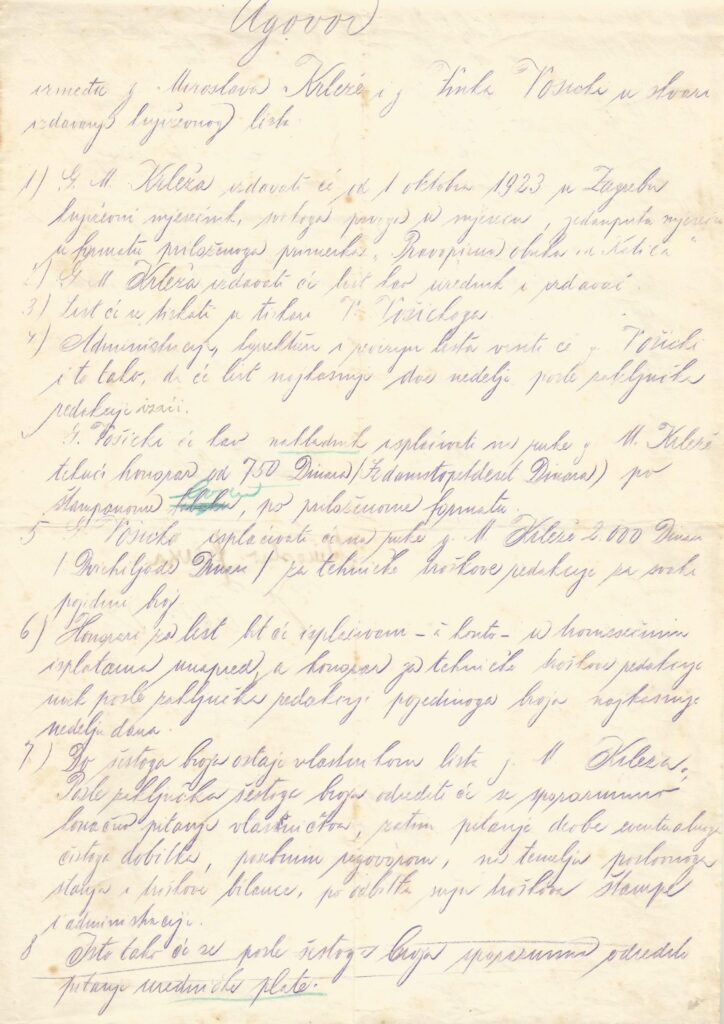 Ugovor
između g. Miroslava Krleže i g. Vinka Vošicki u stvari
izdavanja književnog lista.
1) G. M. Krleža izdavati će od 1 oktobra 1923 u Zagrebu
književni mjesečnik, svakoga prvoga u mjesecu, jedanputa mjesečno
u formatu priloženoga primerka „Pravopisna obuka
2) G. M. Krleža izdavati će list kao urednik i izdavač.
3) List će se tiskati u tiskari V. Vošickoga.
4) Administraciju, korekturu i reviziju lista vršiti će g. Vošicki
i to tako, da će list najkasnije dve nedelje posle zaključka
redakcije izaći.
G. Vošicki će kao nakladnik isplaćivati na ruke g. M. Krleže
tekući honorar od 750 Dinara (Sedamstopetdeset Dinara) po
štampanome, po priloženome formatu.
5 G. Vošicki isplaćivati će na ruke g. M. Krleže 2.000 Dinara
/ Dvehiljade Dinara / za tehničke troškove redakcije za svaki
pojedini broj
6) Honorar za list bit će isplaćivan – à konto – u tromesečnim
isplatama unapred, a honorar za tehničke troškove redakcije
uvek posle zaključka redakcije pojedinoga broja najkasnije
nedelju dana.
7) Do šestoga broja ostaje vlasnikom lista g. M. Krleža.
Posle zaključka šestoga broja odrediti će se sporazumno
konačno pitanje vlasništva, zatim pitanje deobe eventualnog
čistoga dobitka, posebnim ugovorom, na temelju poslovnoga
stanja i troškove bilance, po odbitku svih troškova štampe
i administracije.
8 Isto tako će se posle šestog broja sporazumno odrediti
pitanje uredničke plate.